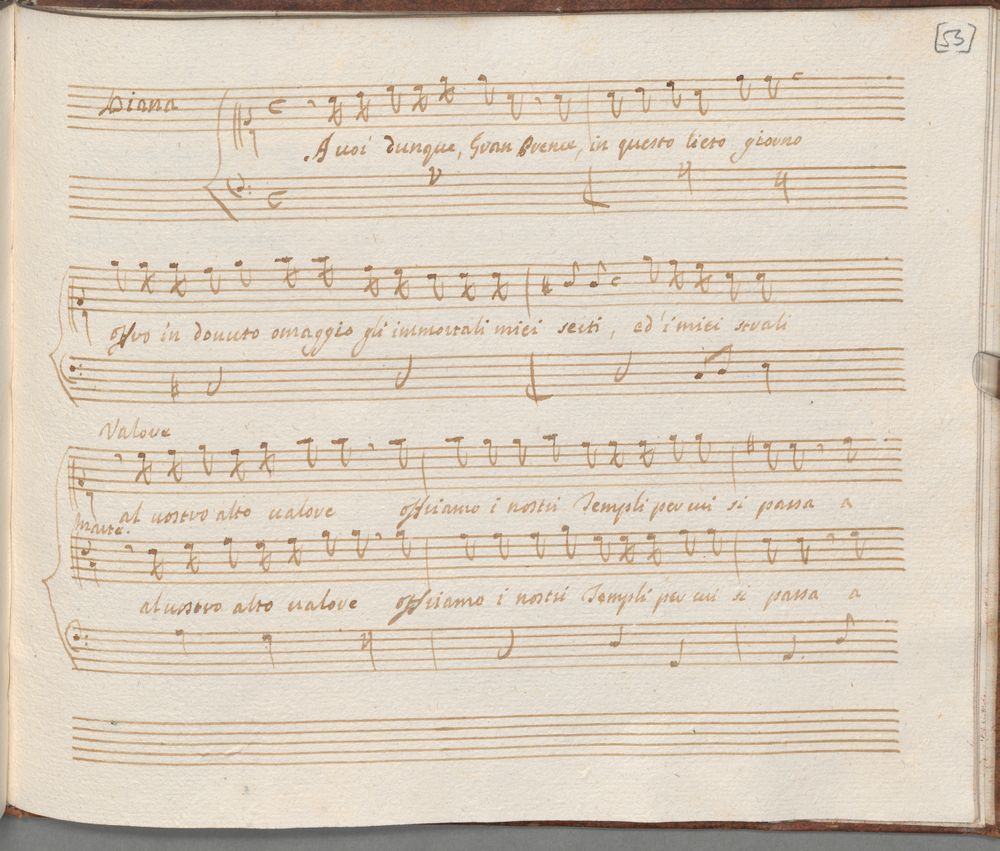 [53]
Diana
A uoi dunque, Gran Prence, in questo lieto giorno
offro in douuto omaggio gli immortali miei serti, ed i miei strali
Valore
al uostro alto ualore offriamo i nostri Templi per cui si passa a
Marte.
al uostro alto ualore offriamo i nostri Templi per cui si passa a